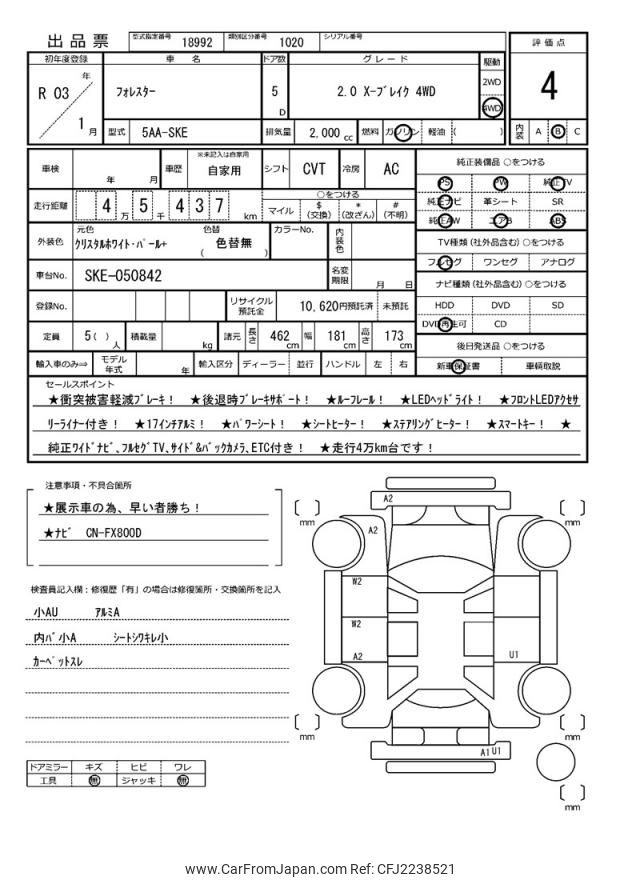 出品票
型式指定番号 18992 類別区分番号 1020 シリアル番号
初年度登録 車名 ドア数 グレード 駆動 評価点
R 03 年 1 月
フォレスター
5 D
2.0 X-ブレイク 4WD
2WD
4WD
4
型式 5AA-SKE 排気量 2,000 cc 燃料 ガソリン 軽油 ( )
内装 A B C
車検 年 月 車歴 ※未記入は自家用 自家用 シフト CVT 冷房 AC
走行距離 4 万 5 千 4 3 7 km
○をつける
マイル $(交換) *(改ざん) #(不明)
外装色 元色 クリスタルホワイト・パール+ 色替 ( 色替無 ) カラーNo. 内装色
車台No. SKE-050842 名変期限 月 日
登録No. リサイクル預託金 10,620円預託済 未預託
定員 5( ) 人 積載量 kg 諸元 長さ 462 cm 幅 181 cm 高さ 173 cm
輸入車のみ⇒ モデル年式 年 輸入区分 ディーラー 並行 ハンドル 左 右
純正装備品 ○をつける
PS PW 純正TV
純正ナビ 革シート SR
純正AW エアB ABS
TV種類 (社外品含む) ○をつける
フルセグ ワンセグ アナログ
ナビ種類 (社外品含む) ○をつける
HDD DVD SD
DVD再生可 CD
後日発送品 ○をつける
新車保証書 車輌取説
セールスポイント
★衝突被害軽減ブレーキ! ★後退時ブレーキサポート! ★ルーフレール! ★LEDヘッドライト! ★フロントLEDアクセサ
リーライナー付き! ★17インチアルミ! ★パワーシート! ★シートヒーター! ★ステアリングヒーター! ★スマートキー! ★
純正ワイドナビ、フルセグTV、サイド&バックカメラ、ETC付き! ★走行4万km台です!
注意事項・不具合箇所
★展示車の為、早い者勝ち!
★ナビ CN-FX800D
検査員記入欄：修復歴「有」の場合は修復箇所・交換箇所を記入
小AU アルミA
内バ小A シートシワキレ小
カーペットスレ
ドアミラー キズ ヒビ ワレ
工具 無 ジャッキ 無
A2
A2
W2
W2
A2
U1
A1 U1
mm
mm
mm
mm
mm
www.CarFromJapan.com Ref: CFJ2238521